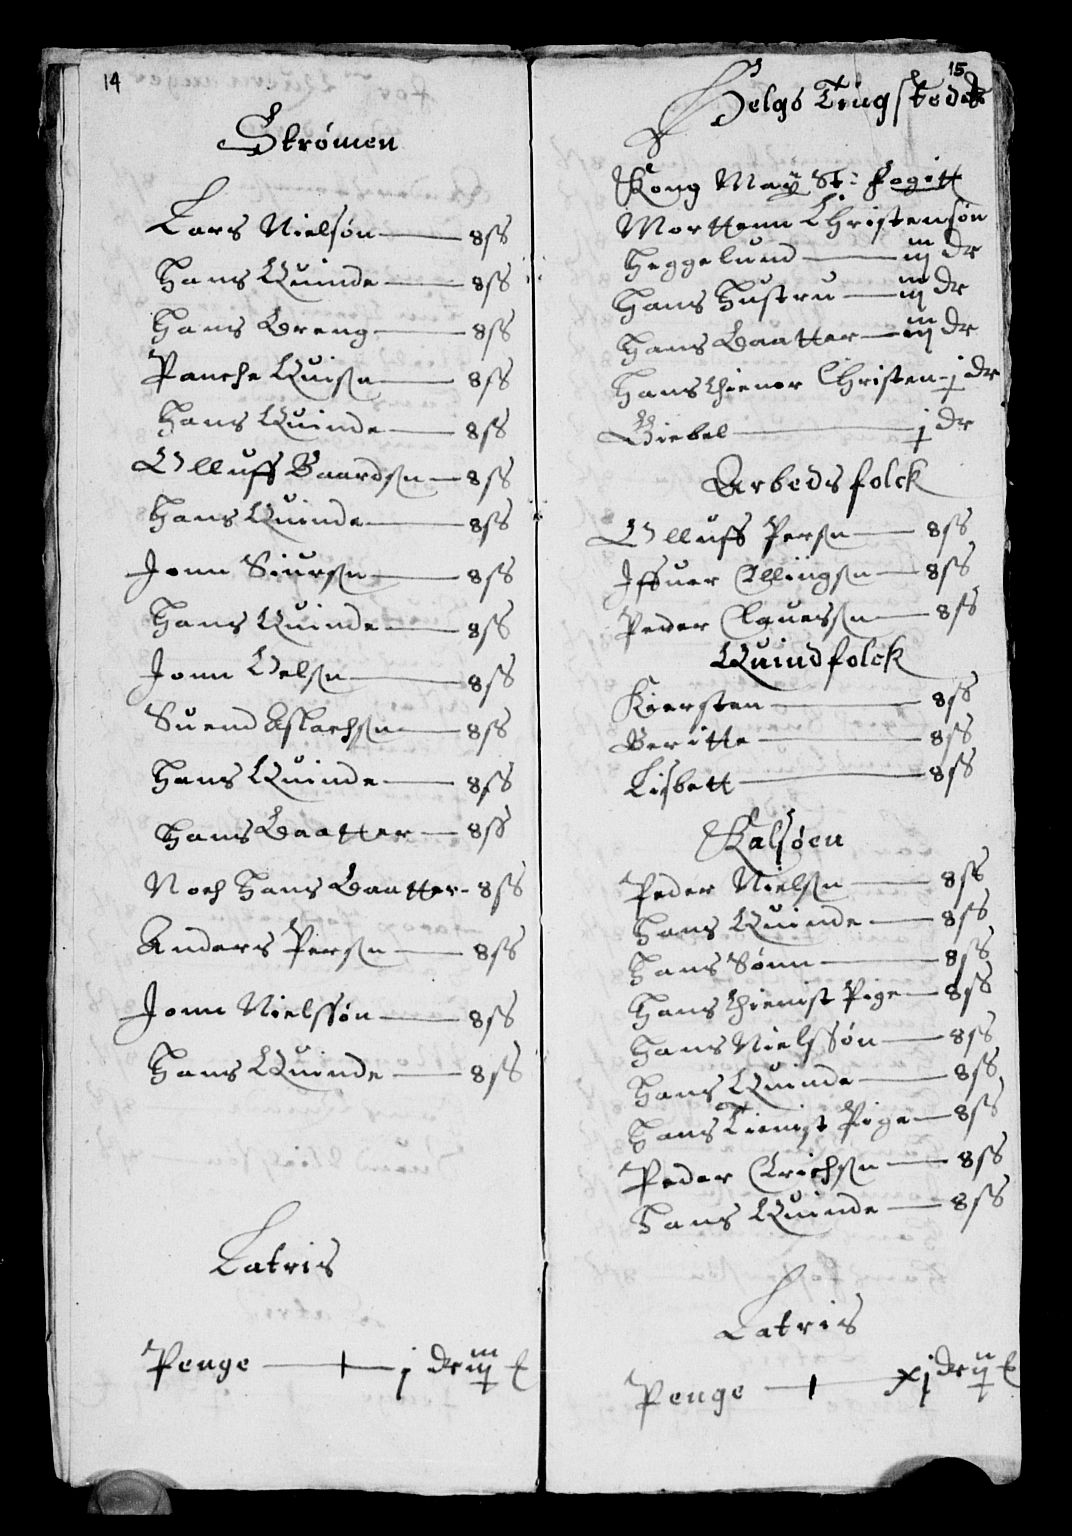 14
Strømen
Lars Nielsøn — 8 ss
Hans Quinde — 8 ss
Hans Dreng — 8 ss
Panche Quisn — 8 ss
Hans Quinde — 8 ss
Olluff Baardsn — 8 ss
Hans Quinde — 8 ss
Jonn Siursn — 8 ss
Hans Quinde — 8 ss
Jonn Olsn — 8 ss
Suend Aslachsn — 8 ss
Hans Quinde — 8 ss
Hans Daatter — 8 ss
Noch Hans Daatter - 8 ss
Anders Persn — 8 ss
Jonn Nielssøn — 8 ss
Hans Quinde — 8 ss
Latris
Penge — j dr iiij
15
Helgø Tingsteder
Kong May St: fogitt
Mortenn Christensøn
Heggelund — iiij dr
Hans Hustru — iiij dr
Hans Daatter — iiij dr
Hans thiener Christen - j dr
Giebel — j dr
Arbedsfolck
Olluff Persn — 8 ss
Iffuer Ellingsn — 8 ss
Peder Clauessn — 8 ss
Quindfolck
Kiersten — 8 ss
Beritte — 8 ss
Lisbett — 8 ss
Kalsøen
Peder Nielsn — 8 ss
Hans Quinde — 8 ss
Hans Sønn — 8 ss
Hans thienist Pige — 8 ss
Hans Nielssøn — 8 ss
Hans Quinde — 8 ss
Hans Tienist Pige — 8 ss
Peder Erichsn — 8 ss
Hans Quinde — 8 ss
Latris
Penge — xj dr ij